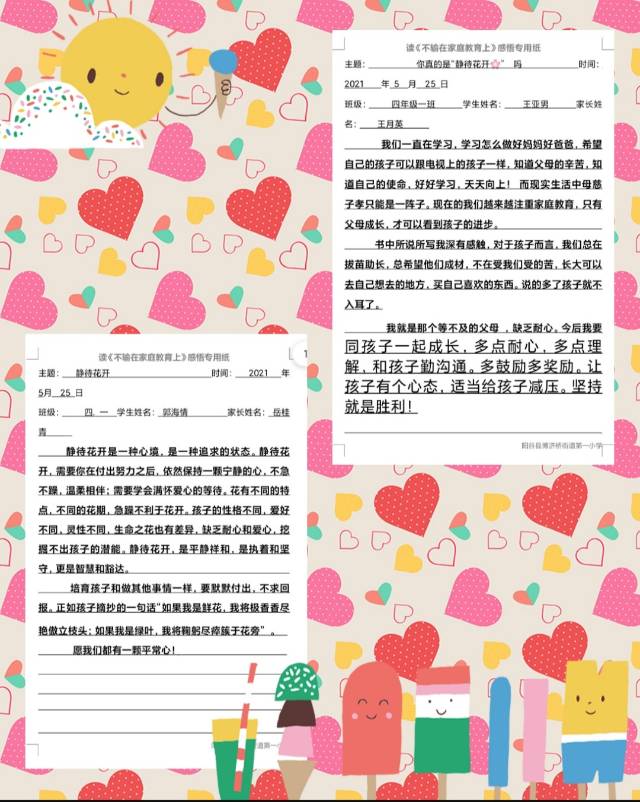 读《不输在家庭教育上》感悟专用纸
主题: 你真的是“静待花开🌸” 吗 时间:
2021 年 5 月 25 日
班级: 四年级一班 学生姓名: 王亚男 家长姓
名: 王月英
我们一直在学习,学习怎么做好妈妈好爸爸,希望
自己的孩子可以跟电视上的孩子一样,知道父母的辛苦,知
道自己的使命,好好学习,天天向上! 而现实生活中母慈
子孝只能是一阵子。现在的我们越来越注重家庭教育,只有
父母成长,才可以看到孩子的进步。
书中所说所写我深有感触,对于孩子而言,我们总在
拔苗助长,总希望他们成材,不在受我们受的苦,长大可以
去自己想去的地方,买自己喜欢的东西。说的多了孩子就不
入耳了。
我就是那个等不及的父母 ,缺乏耐心。今后我要
同孩子一起成长,多点耐心,多点理
解,和孩子勤沟通。多鼓励多奖励。让
孩子有个心态,适当给孩子减压。坚持
就是胜利!
阳谷县博济桥街道第一小学
读《不输在家庭教育上》感悟专用纸
主题: 静待花开 时间: 2021 年
5月 25 日
班级: 四. 一 学生姓名: 郭海情 家长姓名: 岳桂
青
静待花开是一种心境,是一种追求的状态。静待花
开,需要你在付出努力之后,依然保持一颗宁静的心,不急
不躁,温柔相伴;需要学会满怀爱心的等待。花有不同的特
点,不同的花期,急躁不利于花开。孩子的性格不同,爱好
不同,灵性不同,生命之花也有差异,缺乏耐心和爱心,挖
掘不出孩子的潜能。静待花开,是平静祥和,是执着和坚
守,更是智慧和豁达。
培育孩子和做其他事情一样,要默默付出,不求回
报。正如孩子摘抄的一句话“如果我是鲜花,我将极香香尽
艳傲立枝头;如果我是绿叶,我将鞠躬尽瘁簇于花旁” 。
愿我们都有一颗平常心!